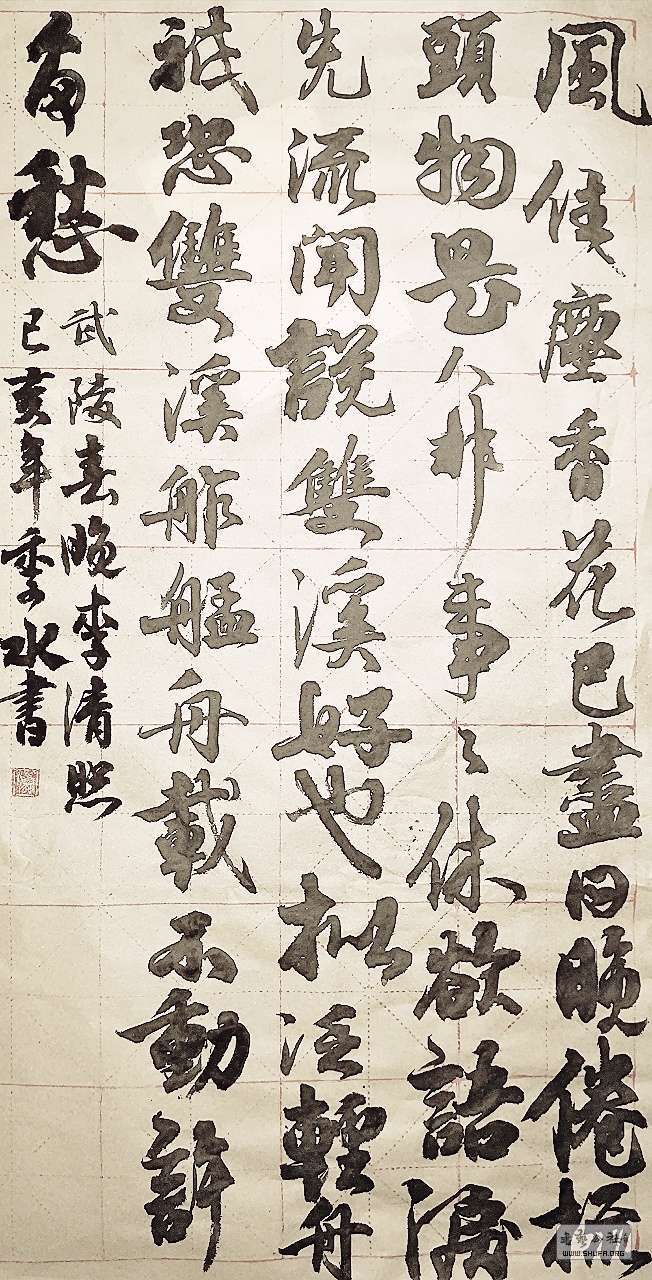 風住塵香花已盡日晚倦梳
頭物是人非事々休欲語淚
先流聞說雙溪好也拟泛輕舟
祇恐雙溪舴艋舟載不動許
多愁
武陵春晚李清照
己亥年季水書
WWW.SHUFA.ORG